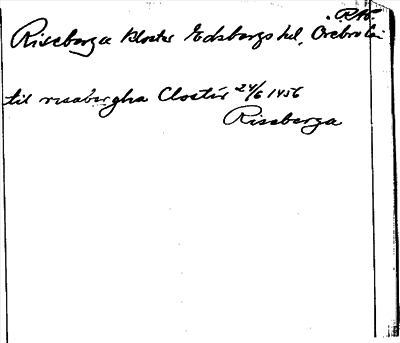 R.A.
Riseberga kloster Edsbergs hd, Örebro län
til risabergha Closter 24/6 1456
Riseberga